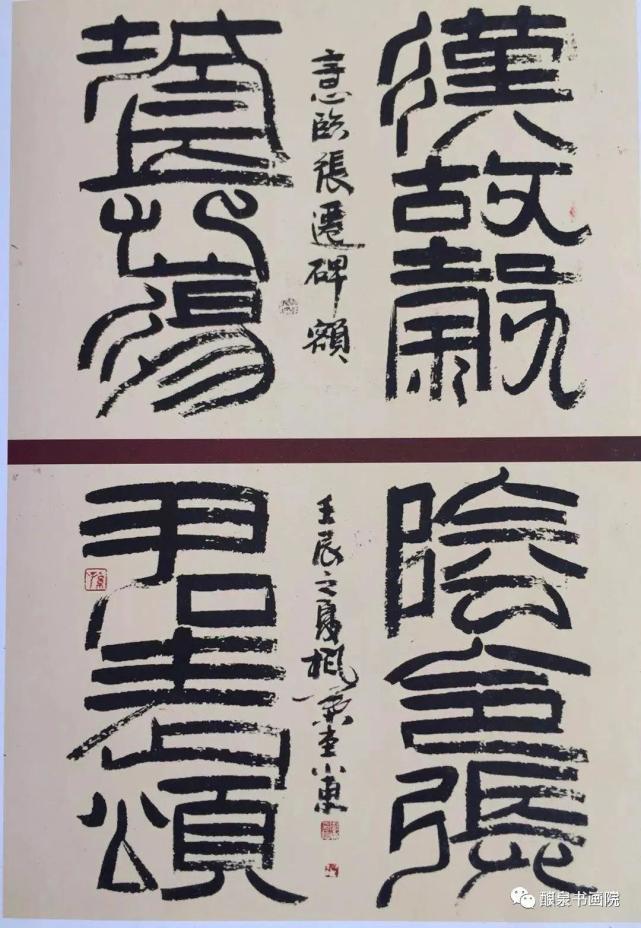 漢故穀
意臨張遷碑額
城長蕩
陰令張
壬辰之夏楓堂小東
君表頌
酿泉书画院